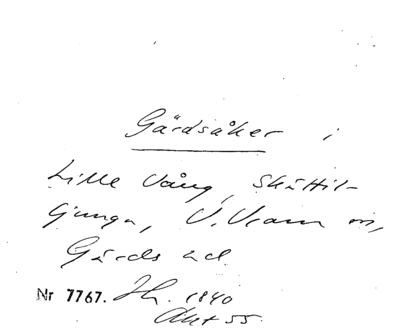 Gårdsåker i
Lille Vång, Skättil-
ljunga, V. Vram sn,
Gärds hd
Nr 7767. Jh. 1840
Akt 55.